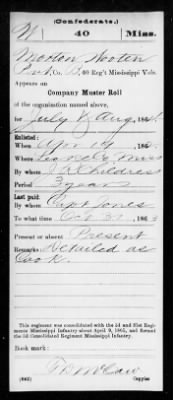 (Confederate.)
W 40 Miss.
Morton Wooten
Pvt. Co. D, 40 Reg't Mississippi Vols.
Appears on
Company Muster Roll
of the organization named above,
for July & Aug, 1864.
Enlisted:
When Apr 19, 186
Where Miss
By whom J Childress
Period 3 years
Last paid:
By whom Capt Jones
To what time Oct 31, 1863
Present or absent Present
Remarks: Detailed as
Cook.
This regiment was consolidated with the 3d and 31st Regiments
Mississippi Infantry about April 9, 1865, and formed
the 3d Consolidated Regiment Mississippi Infantry.
Book mark:
(642) Copyist.